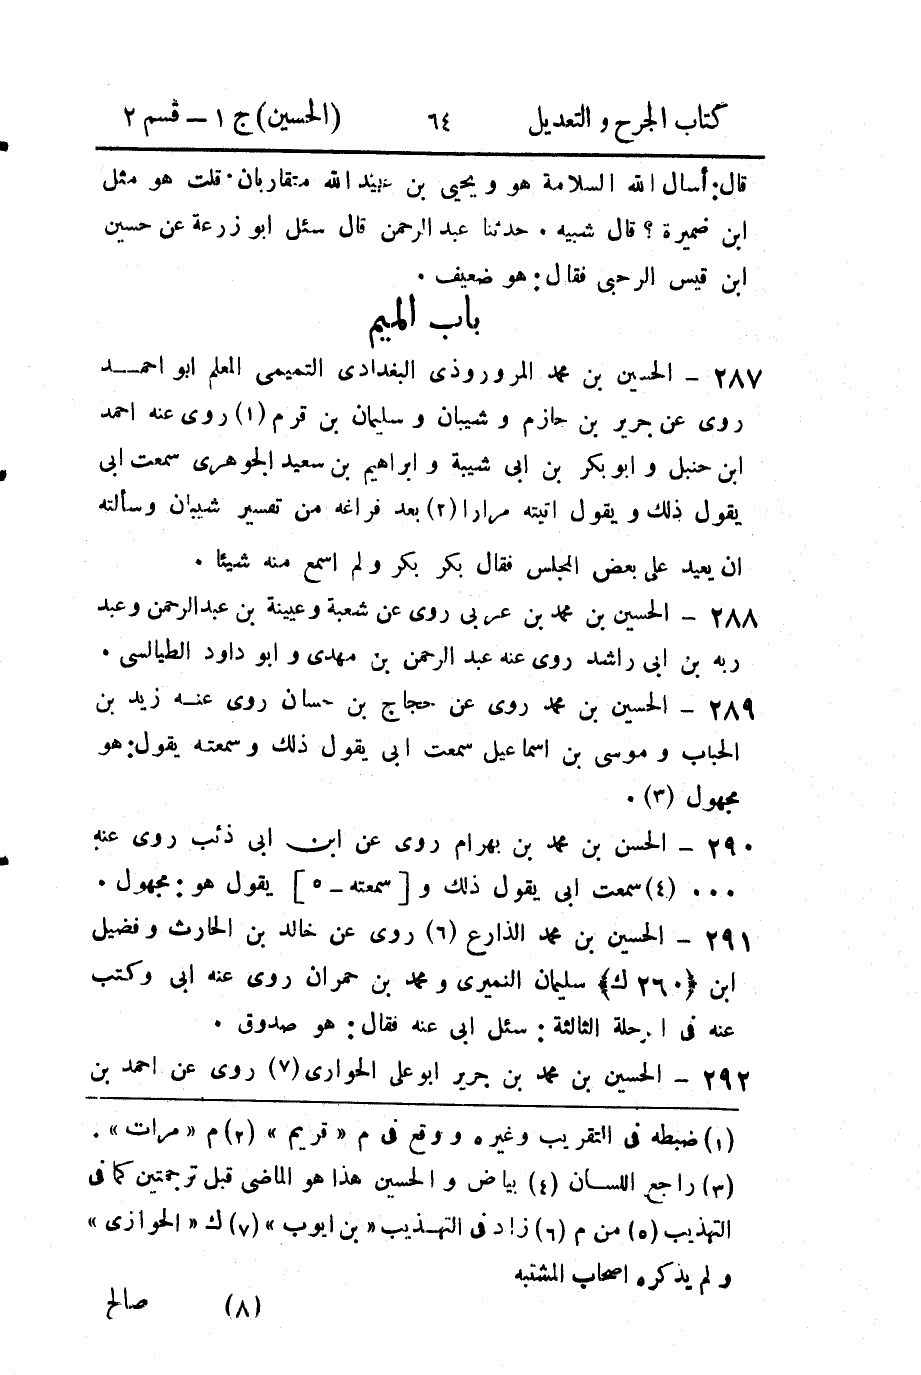 كتاب الجرح و التعديل ٦٤ (الحسين) ج ١ – قسم ٢
قال: أسال الله السلامة هو و يحيى بن عبيد الله متقاربان · قلت هو مثل
ابن ضميرة ؟ قال شبيه . حدثنا عبد الرحمن قال سئل ابو زرعة عن حسين
ابن قيس الرحبى فقال: هو ضعيف .
باب الميم
٢٨٧ – الحسين بن محمد المروروذى البغدادى التميمى المعلم ابو احمد
روى عن جرير بن حازم و شيبان و سليمان بن قرم (١) روى عنه احمد
ابن حنبل و ابو بكر بن ابى شيبة و ابراهيم بن سعيد الجوهرى سمعت ابى
يقول ذلك و يقول اتيته مرارا (٢) بعد فراغه من تفسير شيبان وسألته
ان يعيد على بعض المجلس فقال بكر بكر و لم اسمع منه شيئا .
٢٨٨ – الحسين بن محمد بن عربى روى عن شعبة و عيينة بن عبدالرحمن و عبد
ربه بن ابى راشد روى عنه عبد الرحمن بن مهدى و ابو داود الطيالسى .
٢٨٩ – الحسين بن محمد روى عن حجاج بن حسان روى عنه زيد بن
الحباب و موسى بن اسماعيل سمعت ابى يقول ذلك و سمعته يقول: هو
مجهول (٣) .
٢٩٠ – الحسن بن محمد بن بهرام روى عن ابن ابى ذئب روى عنه
٠٠٠ (٤) سمعت ابى يقول ذلك و [سمعته – ٥] يقول هو: مجهول .
٢٩١ – الحسين بن محمد الذارع (٦) روى عن خالد بن الحارث و فضيل
ابن ﴿٢٦٠ ك﴾ سليمان النميرى و محمد بن حمران روى عنه ابى وكتب
عنه فى الرحلة الثالثة: سئل ابى عنه فقال: هو صدوق .
٢٩٢ – الحسين بن محمد بن جرير ابوعلى الحوارى (٧) روى عن احمد بن
(١) ضبطه فى التقريب وغيره و وقع فى م « قريم » (٢) م « مرات » .
(٣) راجع اللسان (٤) بياض و الحسين هذا هو الماضى قبل ترجمتين كما فى
التهذيب (٥) من م (٦) زاد فى التهذيب « بن ايوب » (٧) ك « الحوازى »
و لم يذكره اصحاب المشتبه
(٨) صالح